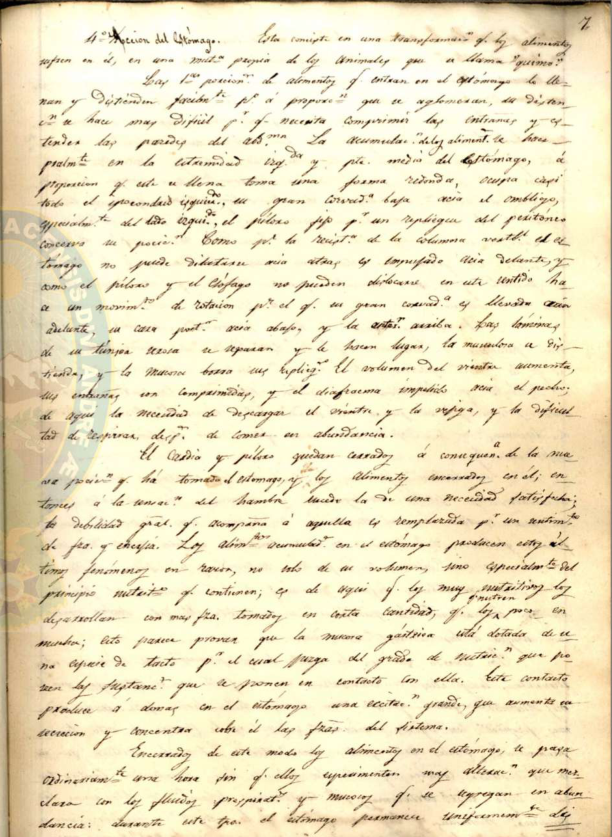 7.
4.º Accion del Estómago. Esta consiste en una transformac.n q.e los alimentos
sufren en él, en una mat.a propia de los animales que se llama "quimo".
Las 1.as porcion.s de alimentos q.e entran en el estómago le lle-
nan y distienden facilm.te p.o á proporc.n que se aglomeran, su disten-
c.n se hace mas dificil p.r q.e necesita comprimir las entrañas y es-
tender las paredes del abd.men La acumulac.n de los aliment.s se hace
pralm.te en la estremidad izq.da y p.te media del Estómago, á
proporcion q.e este se llena toma una forma redonda, ocupa casi
todo el ipocondrio izquierd.o, su gran corvad.a baja acia el ombligo,
especialm.te del lado izquierd.o, el piloro fijo p.r un repliegue del peritoneo
conserva su posic.n Como p.r la resist.a de la columna vertb.l el es-
tomago no puede dilatarse acia atras es empujado acia delante, y
como el piloro y el esófago no pueden dislocarse en este sentido ha-
ce un movim.to de rotacion p.r el q.e su gran corvad.a es llevada acia
adelante, su cara post.r acia abajo, y la anter.r arriba. Las laminas
de su tunica serosa se separan y le hacen lugar, la musculosa se dis-
tiende, y la mucosa borra sus replieg.s El volumen del vientre aumenta,
sus entrañas son comprimidas, y el diafracma impelido acia el pecho;
de aqui la necesidad de descargar el vientre, y la vejiga, y la dificul-
tad de respirar, desp.s de comer en abundancia.
El Cardia y piloro quedan cerrados á consequen.a de la nue-
va posic.n q.e há tomado el estomago, y los alimentos encerrados en él; en-
tonces á la sensac.n del hambre sucede la de una necesidad satisfecha;
la debilidad gral. q.e acompaña á aquella es remplazada p.r un sentim.to
de fza. y energia. Los alim.tos acumulad.s en el estómago producen estos úl-
timos fenómenos en razon, no solo de su volumen, sino especialm.te del
principio nutrit.vo q.e contienen; es de aqui q.e los muy nutritivos los
desarrollan con mas fza. tomados en corta cantidad, q.e los q.e nutren poco en
mucha; esto parece provar que la mucosa gástrica está dotada de u-
na especie de tacto p.r el cual juzga del grado de nutric.n que po-
seen las sustanc.s que se ponen en contacto con ella. Este contacto
produce á demas en el estómago una excitac.n grande, que aumenta su
secrecion y concentra sobre él las fzas. del sistema.
Encerrados de este modo los alimentos en el estómago, se pasa
ordinariam.te una hora sin q.e ellos esperimenten mas alterac.n que mez-
clarse con los fluidos perspirat.s y mucosos q.e se agregan en abun-
dancia: durante este tpo. el estomago permanece uniformem.te dis-